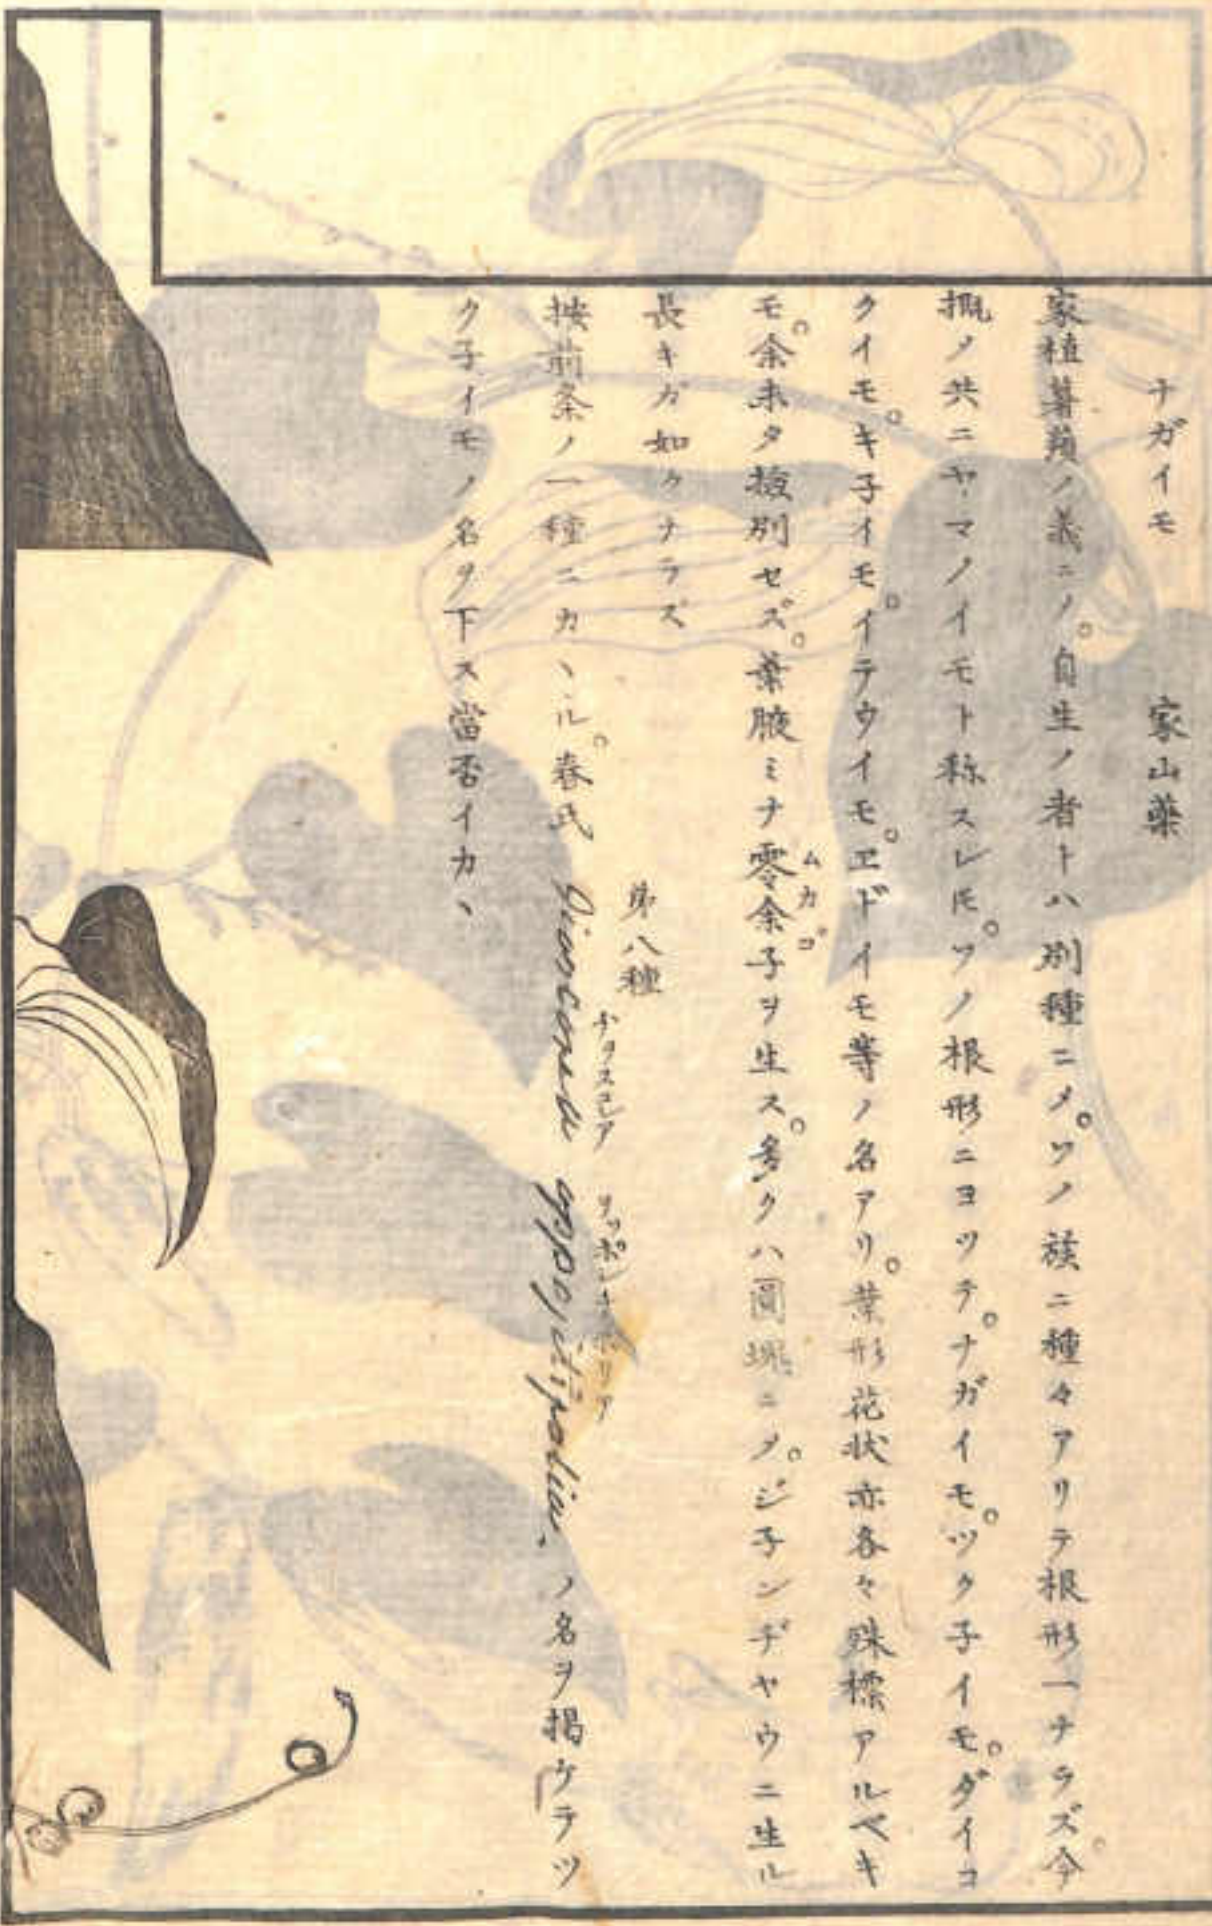 ナガイモ　家山薬
家植薯蕷ノ義ニ〆。自生ノ者トハ別種ニ〆。ソノ族ニ種々アリテ根形一ナラズ。今
概ノ共ニヤマノイモト称スレ𪜈。ソノ根形ニヨツテ。ナガイモ。ツク子イモ。ダイコ
クイモ。キ子イモ。イテウイモ。ヱドイモ等ノ名アリ。葉形花状亦各々殊標アルベキ
モ。余未タ撿別セズ。葉腋ミナ零余子ヲ生ス。多クハ圓塊ニ〆。ジ子ンヂヤウニ生ル
ムカゴ
長キガ如クナラズ
第八種
按前条ノ一種ニカヽル。春氏 Dioscorea oppositifolia, ノ名ヲ掲ケテツ
ク子イモノ名ヲ下ス當否イカヽ